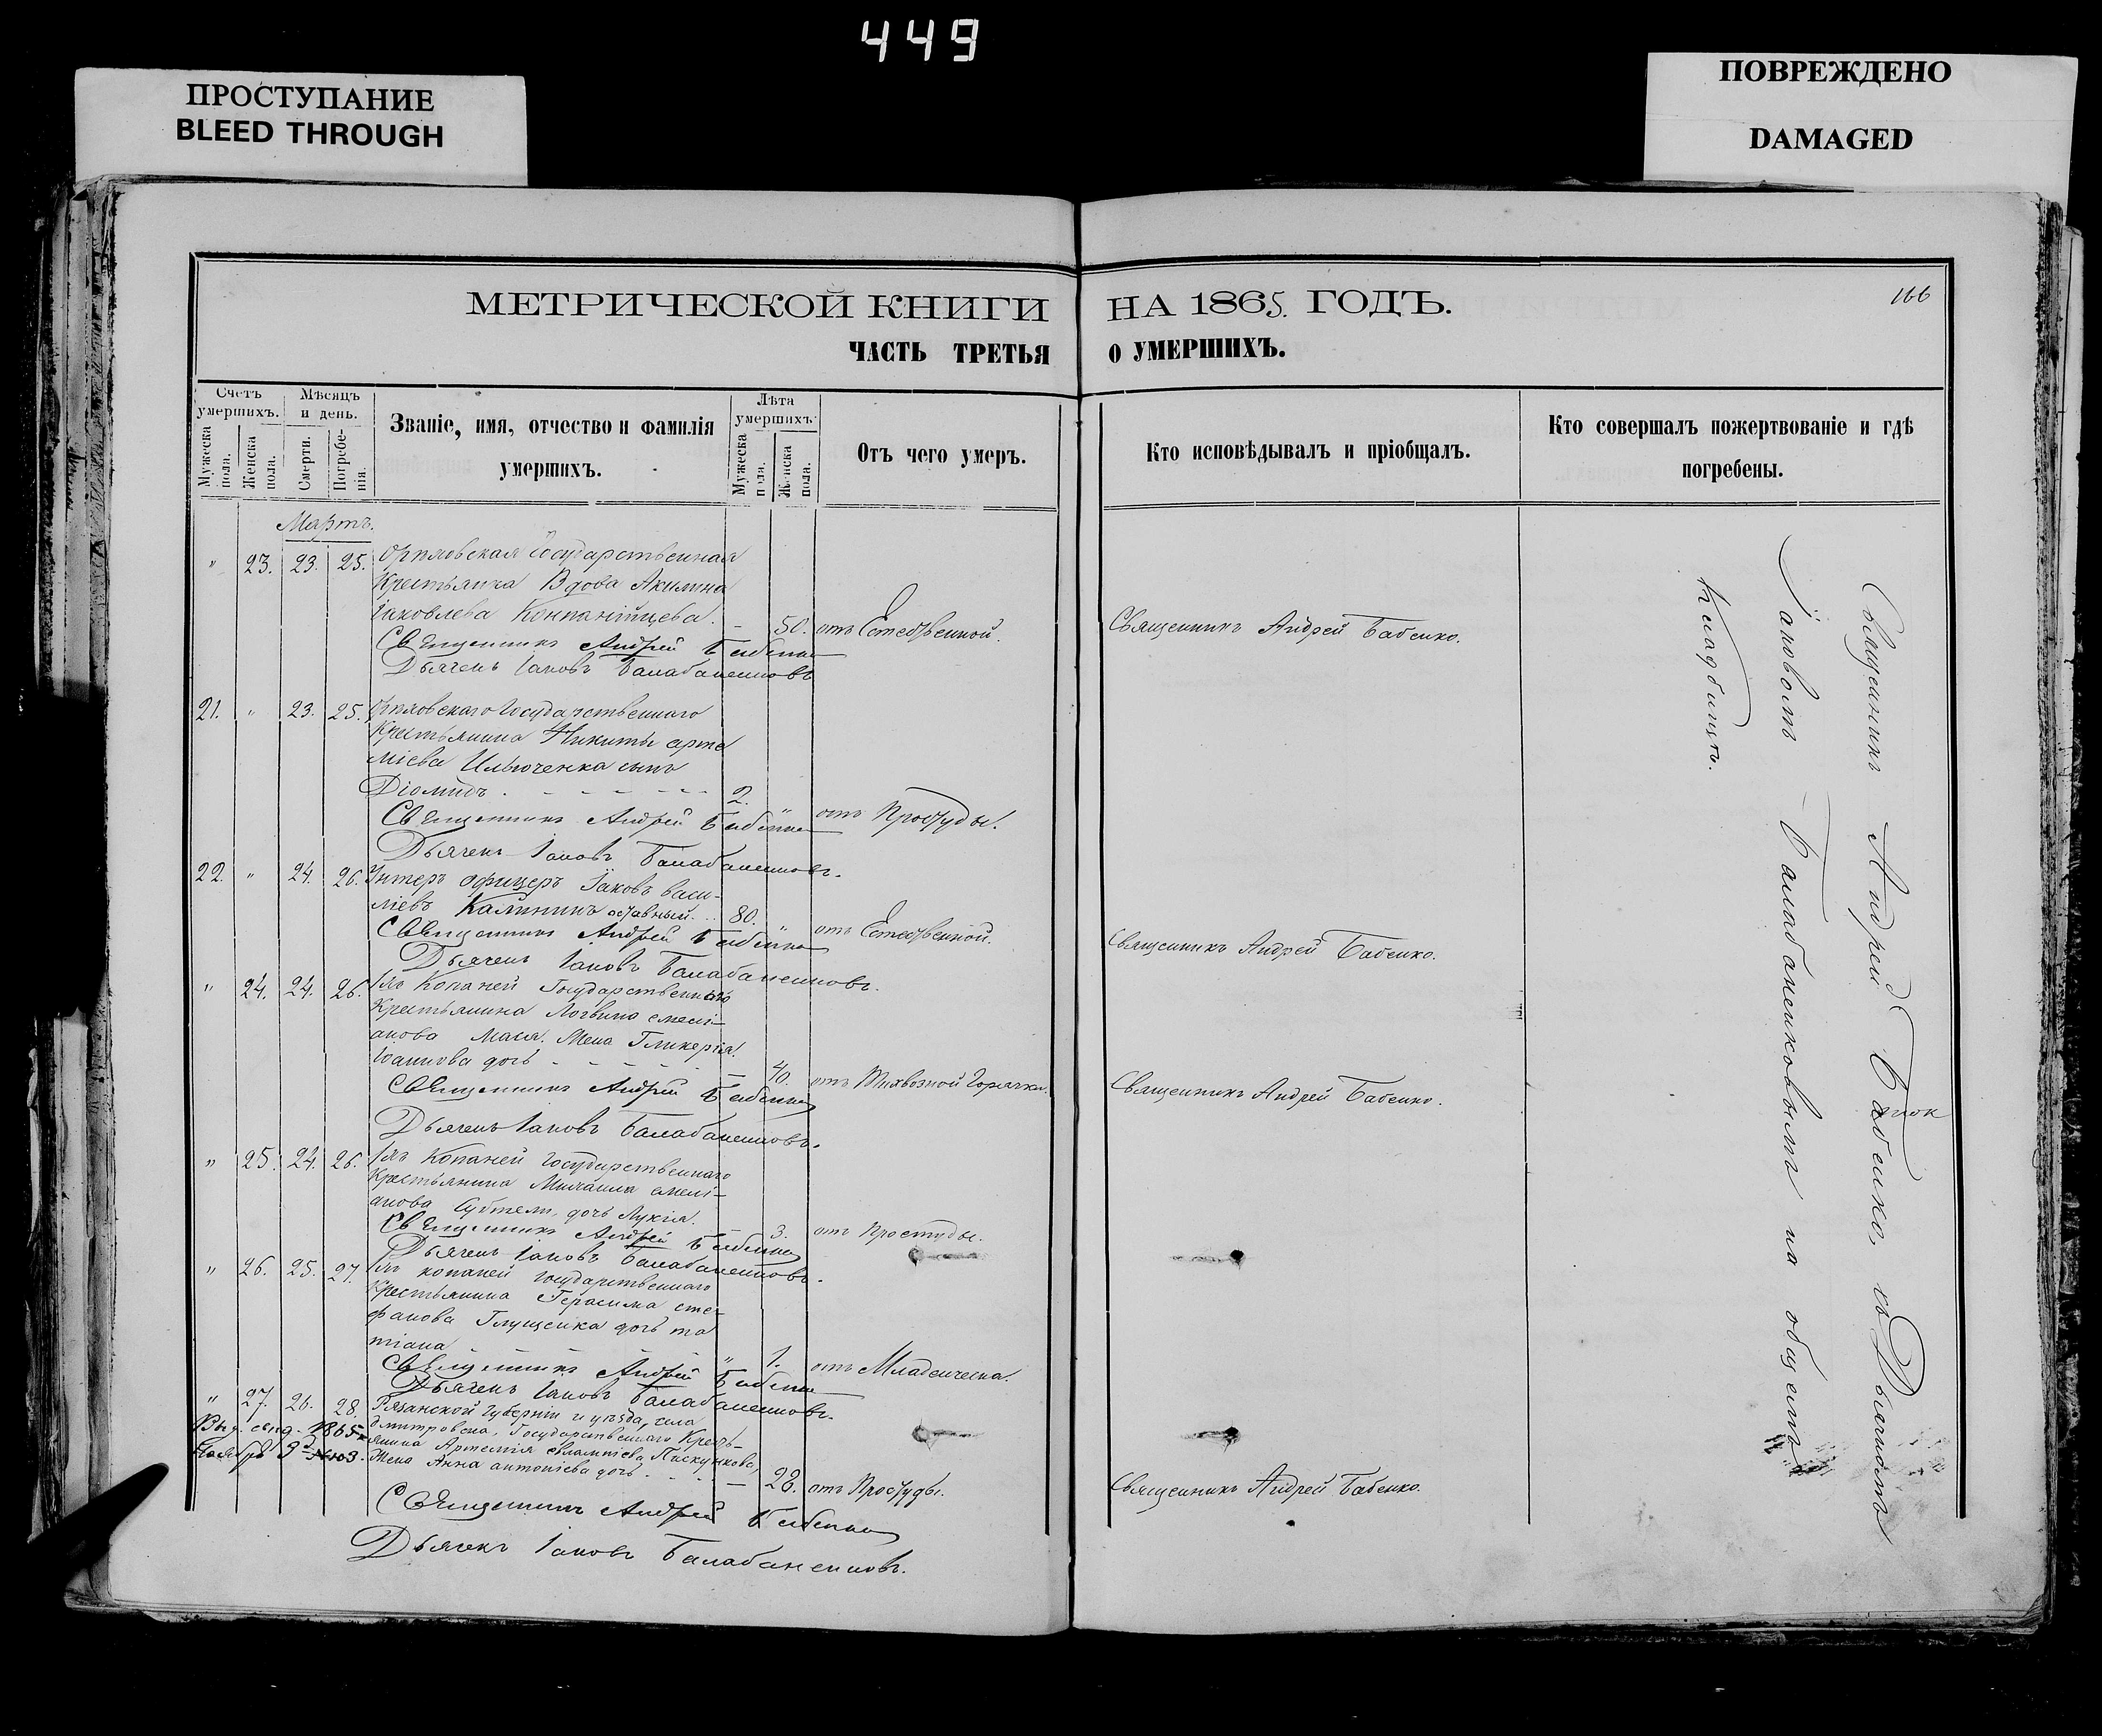 449
ПРОСТУПАНИЕ
BLEED THROUGH
ПОВРЕЖДЕНО
DAMAGED
166
МЕТРИЧЕСКОЙ КНИГИ НА 1865. ГОДЪ.
ЧАСТЬ ТРЕТЬЯ О УМЕРШИХЪ.
Счетъ умершихъ.
Мужеска пола.
Женска пола.
Мѣсяцъ и день.
Смерти.
Погребенія.
Званіе, имя, отчество и фамилія
умершихъ.
Лѣта умершихъ.
Мужеска пола.
Женска пола.
Отъ чего умеръ.
Кто исповѣдывалъ и пріобщалъ.
Кто совершалъ пожертвованіе и гдѣ
погребены.
Мартъ.
" 23. 23. 25. Государственная
Крестьянка Вдова Акилина
Іаковлева Конпанійцева. - 50. отъ Естественной. Священникъ Андрей Бабенко.
Священникъ Андрей Бабенко
Дьячекъ Іаковъ Балабаненковъ
21. " 23. 25. Государственнаго
Крестьянина Никиты арте
міева Ильюченка сынъ
Діомидъ . - - - - - 2. " отъ Простуды.
Священникъ Андрей Бабенко
Дьячекъ Іаковъ Балабаненковъ.
22. " 24. 26. Унтеръ офицеръ Іаковъ васи-
ліевъ Калининъ 80. " отъ Естественной. Священникъ Андрей Бабенко.
Священникъ Андрей Бабенко
Дьячекъ Іаковъ Балабаненковъ.
" 24. 24. 26. Копаней Государственнаго
Крестьянина Логвина емелі-
анова Жена Гликерія
Іоаннова дочь - - - 40. отъ Горячки. Священникъ Андрей Бабенко.
Священникъ Андрей Бабенко
Дьячекъ Іаковъ Балабаненковъ.
" 25. 24. 26. Копаней Государственнаго
Крестьянина Михаила емелі-
анова дочь Лукія. - 3. отъ Простуды.
Священникъ Андрей Бабенко
Дьячекъ Іаковъ Балабаненковъ.
" 26. 25. 27. копаней Государственнаго
Крестьянина Герасима сте-
фанова Глущенка дочь та
тіана - - - " 1. отъ Младенческа.
Священникъ Андрей Бабенко
Дьячекъ Іаковъ Балабаненковъ.
" 27. 26. 28. Рязанской Губерніи и уѣзда, села
Дмитровска, Государственнаго Кресть-
янина Артемія евлампіева Пискункова,
Жена Анна антоніева дочь - - - 28. отъ Простуды. Священникъ Андрей Бабенко.
1865
Ноября
Священникъ Андрей Бабенко
Дьячекъ Іаковъ Балабаненковъ.
Священникъ Андрей Бабенко, съ Дьячкомъ
Іаковомъ Балабаненковымъ на общемъ
Кладбищѣ.